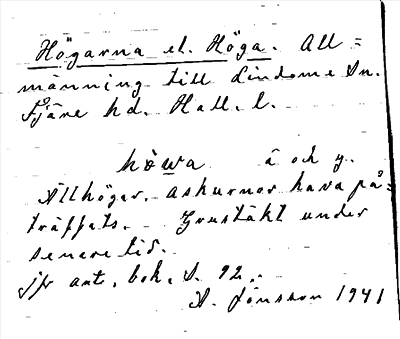 Högarna el. Höga. All=
männing till Lindome Sn.
Fjäre hd. Hall. l.
hòwa å och y.
Ätthögar. Askurnor hava på=
träffats. Grustäkt under
senare tid.
jfr ant. bok. S. 92.
A. Jönsson 1941